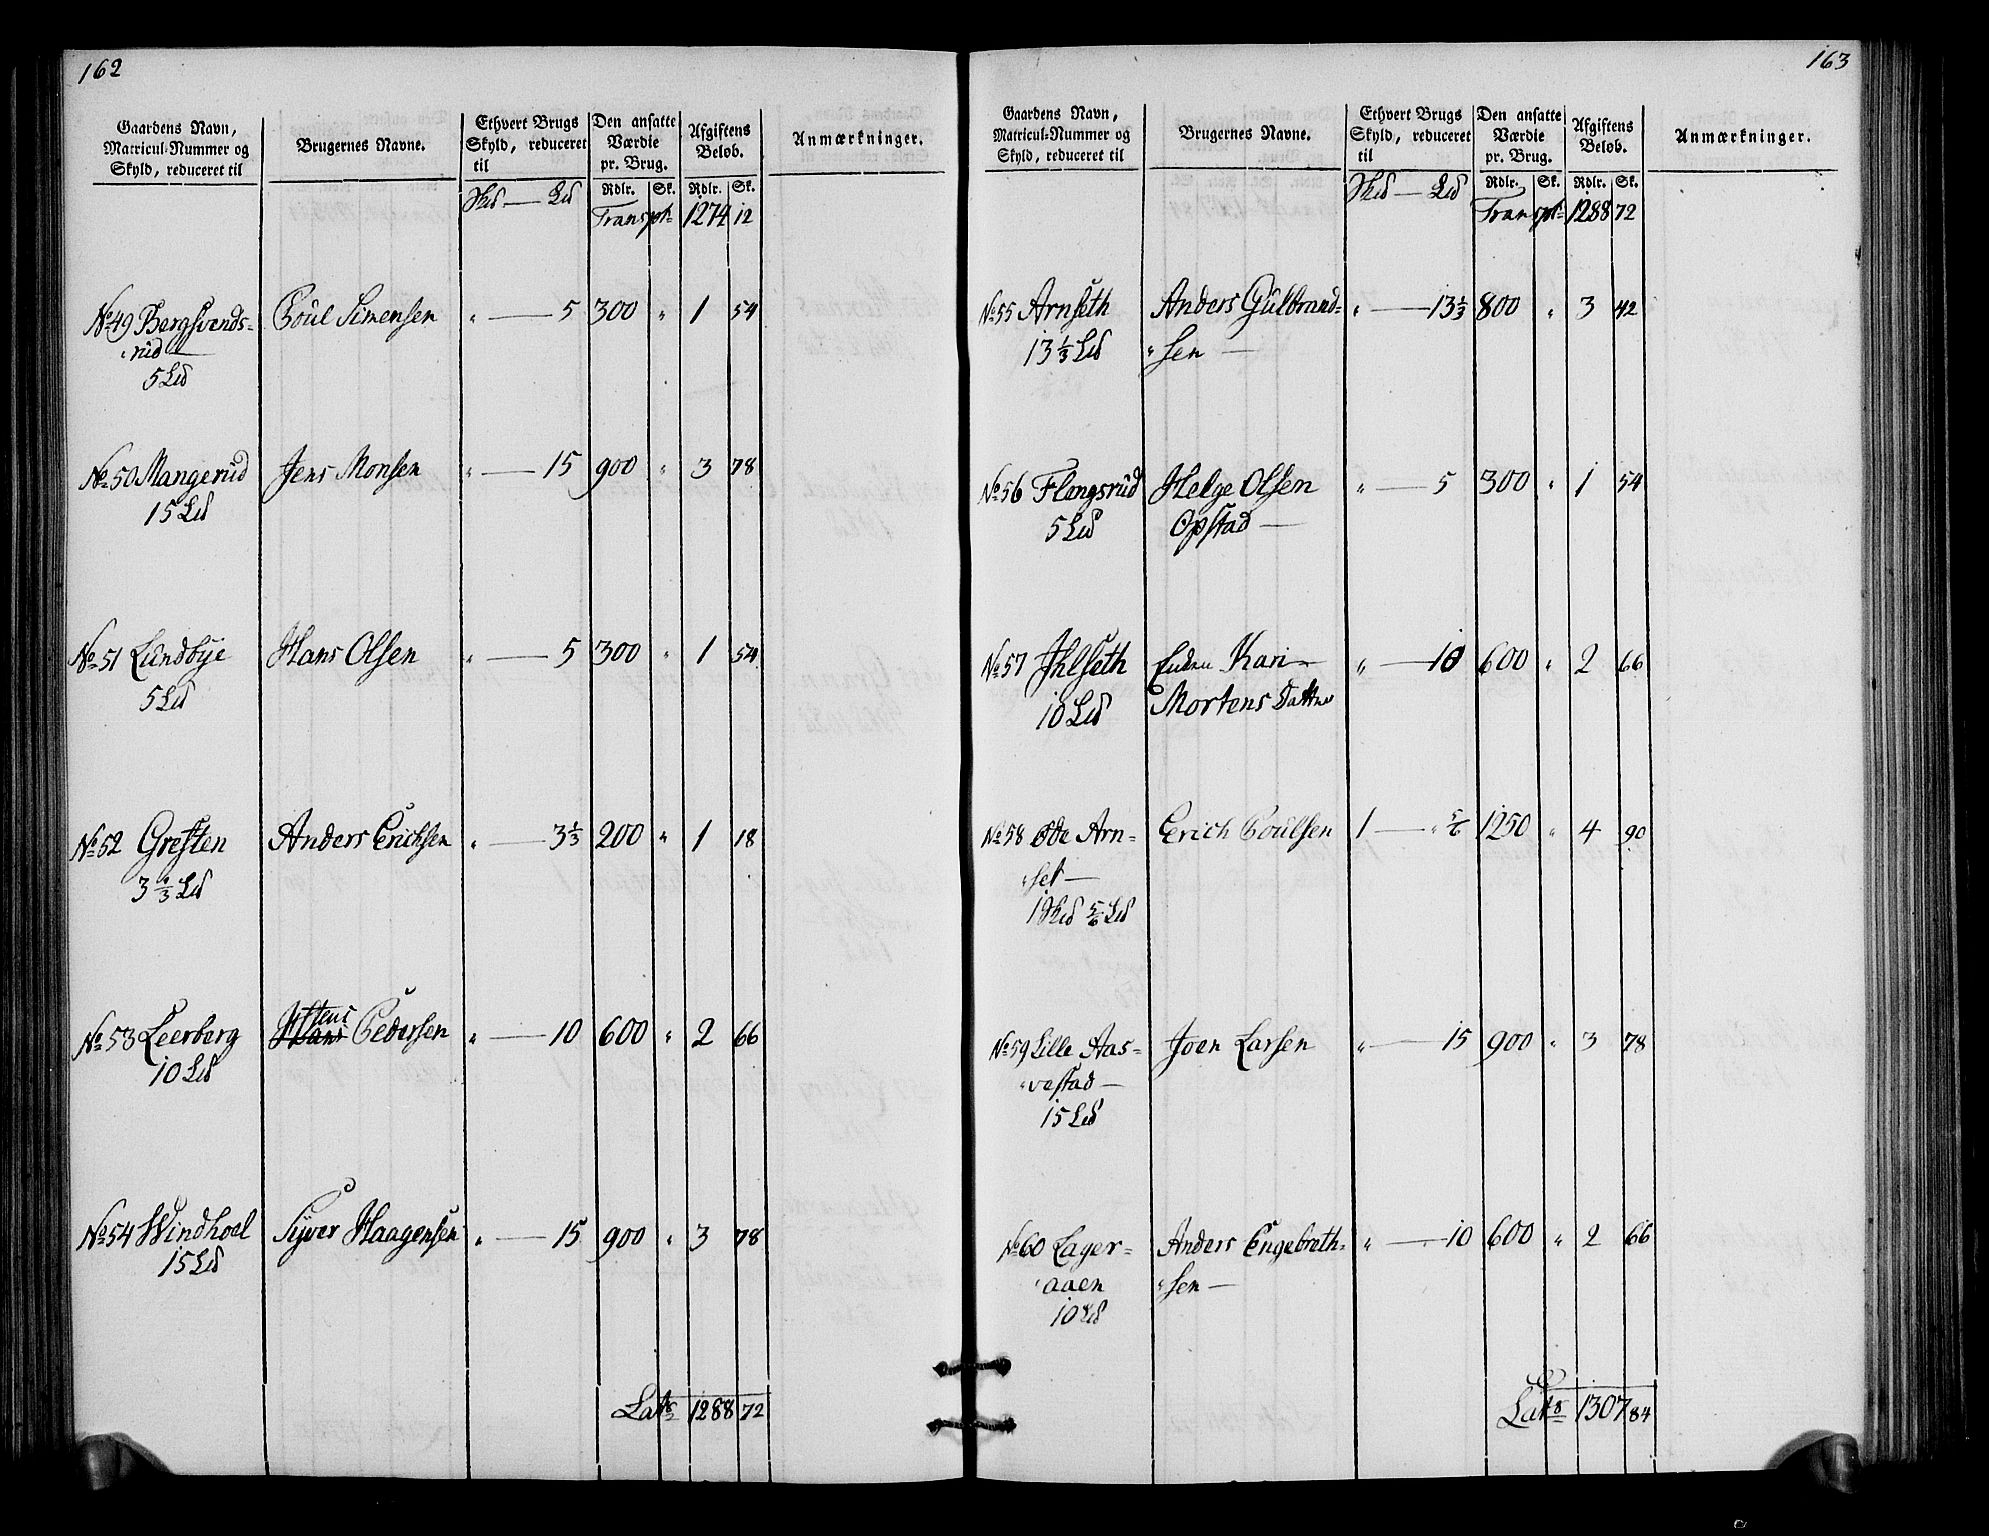 162
Gaardens Navn, Matricul-Nummer og Skyld, reduceret til | Brugernes Navne. | Ethvert Brugs Skyld, reduceret til | Den ansatte Værdie pr. Brug. | Afgiftens Beløb. | Anmærkninger.
Skd — Ld | Rdlr. | Sk. | Rdlr. | Sk.
Transpt | 1274 | 12
No 49 Bergsvends- | Poul Simensen | " — 5 | 300 | " | 1 | 54
"rud —
5 Ld
No 50 Mangerud | Jens Monsen | " — 15 | 900 | " | 3 | 78
15 Ld
No 51 Lundbye | Hans Olsen | " — 5 | 300 | " | 1 | 54
5 Ld
No 52 Gresten | Anders Erichsen | " — 3 1/3 | 200 | " | 1 | 18
3 1/3 Ld
No 53 Leerberg | Hans Pedersen | " — 10 | 600 | " | 2 | 66
10 Ld
No 54 Windhoel | Syver Haagensen | " — 15 | 900 | " | 3 | 78
15 Ld
Lats | 1288 | 72
163
Gaardens Navn, Matricul-Nummer og Skyld, reduceret til | Brugernes Navne. | Ethvert Brugs Skyld, reduceret til | Den ansatte Værdie pr. Brug. | Afgiftens Beløb. | Anmærkninger.
Skd — Ld | Rdlr. | Sk. | Rdlr. | Sk.
Transpt | 1288 | 72
No 55 Arnseth | Anders Gulbrand- | " — 13 1/3 | 800 | " | 3 | 42
13 1/3 Ld | "sen —
No 56 Flengsrud | Helge Olsen | " — 5 | 300 | " | 1 | 54
5 Ld | Opstad —
No 57 Ihlseth | Enken Kari | " — 10 | 600 | " | 2 | 66
10 Ld | Mortens Datter
No 58 Øde Arn- | Erich Poulsen | 1 — " 5/6 | 1250 | " | 4 | 90
"set —
1 Skd 5/6 Ld
No 59 Lille Aas- | Joen Larsen | " — 15 | 900 | " | 3 | 78
"vestad —
15 Ld
No 60 Lager- | Anders Engebreth- | " — 10 | 600 | " | 2 | 66
"aaen | "sen —
10 Ld
Lats | 1307 | 84